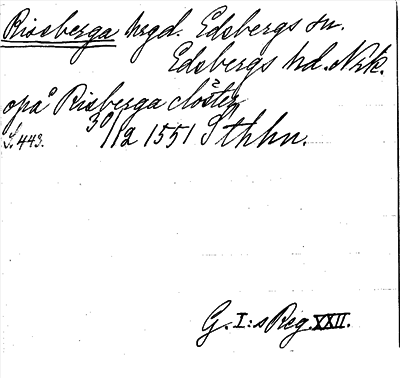 Rissberga hrgd. Edsbergs sn.
Edsbergs hd. Nrk.
opå Risberga closter
S. 443. 30/12 1551 Sthlm.
G. I:s Reg. XXII.